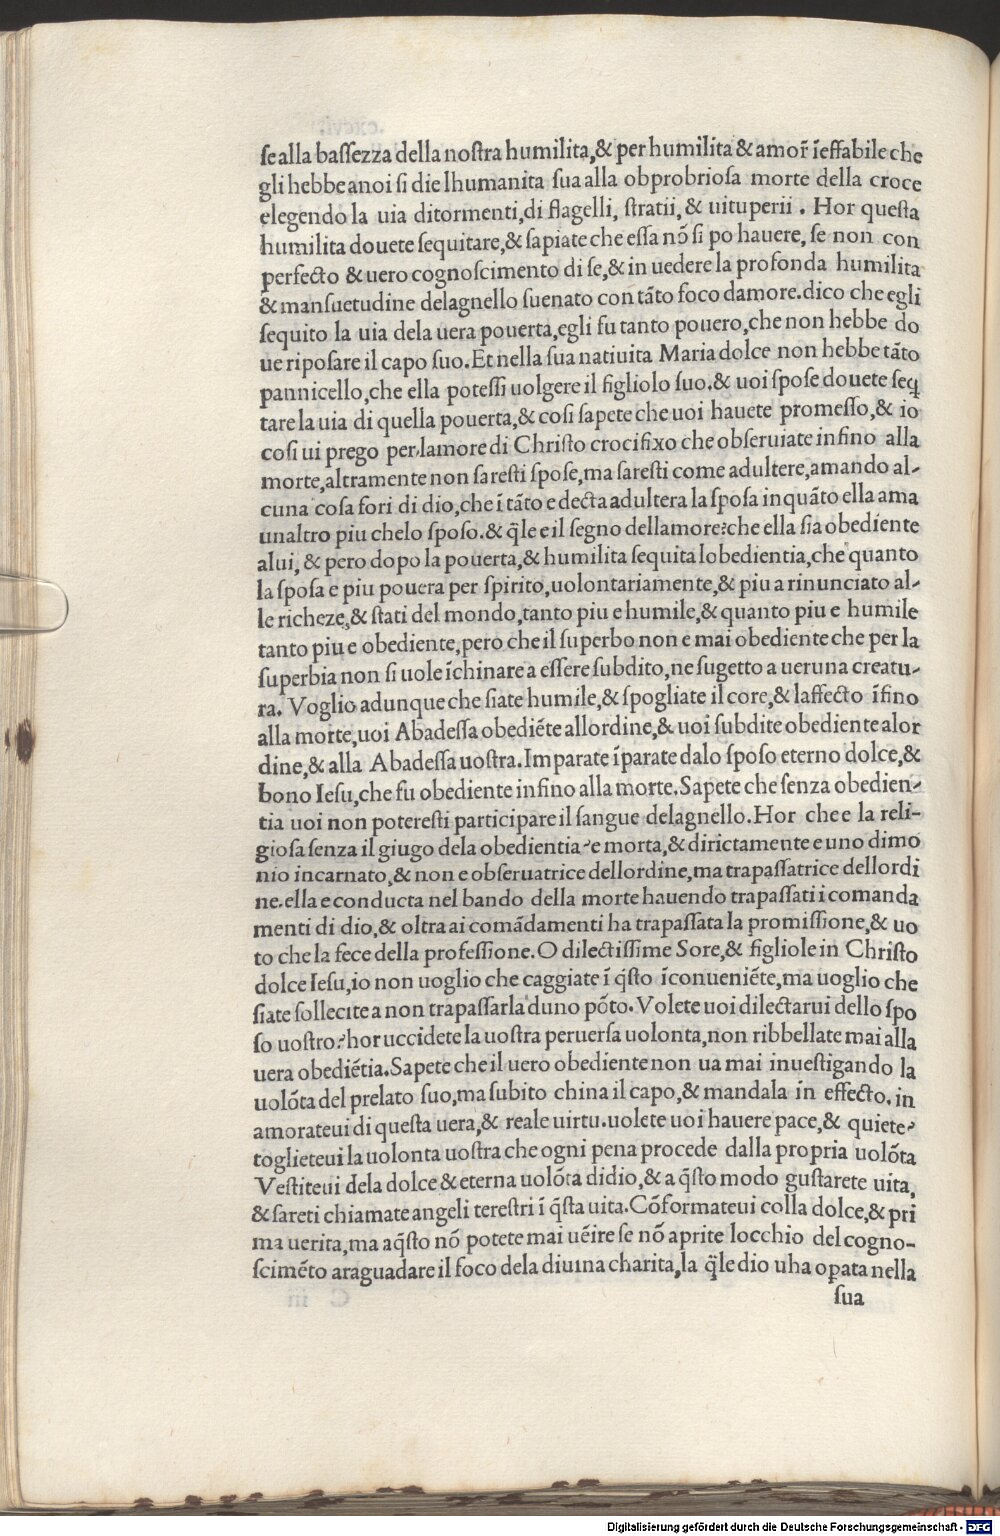 ſe alla baſſezza della noſtra humilita,& per humilita & amor̃ ĩeffabile che
gli hebbe anoi ſi die lhumanita ſua alla obprobrioſa morte della croce
elegendo la uia ditormenti,di flagelli, ſtratii, & uituperii . Hor queſta
humilita douete ſequitare,& ſapiate che eſſa nõ ſi po hauere, ſe non con
perfecto & uero cognoſcimento di ſe,& in uedere la profonda humilita
& manſuetudine delagnello ſuenato con tãto foco damore.dico che egli
ſequito la uia dela uera pouerta,egli fu tanto pouero,che non hebbe do
ue ripoſare il capo ſuo.Et nella ſua natiuita Maria dolce non hebbe tãto
pannicello,che ella poteſſi uolgere il figliolo ſuo.& uoi ſpoſe douete ſeq̃
tare la uia di quella pouerta,& coſi ſapete che uoi hauete promeſſo,& io
coſi ui prego per lamore di Chriſto crocifixo che obſeruiate infino alla
morte,altramente non ſareſti ſpoſe,ma ſareſti come adultere,amando al-
cuna coſa fori di dio,che ĩ tãto e decta adultera la ſpoſa inquãto ella ama
unaltro piu chelo ſpoſo.& q̃le e il ſegno dellamore?che ella ſia obediente
alui, & pero dopo la pouerta,& humilita ſequita lobedientia,che quanto
la ſpoſa e piu pouera per ſpirito,uolontariamente,& piu a rinunciato al-
le richeze,& ſtati del mondo,tanto piu e humile,& quanto piu e humile
tanto piu e obediente,pero che il ſuperbo non e mai obediente che per la
ſuperbia non ſi uole ĩchinare a eſſere ſubdito,ne ſugetto a ueruna creatu-
ra. Voglio adunque che ſiate humile,& ſpogliate il core,& laffecto ĩfino
alla morte,uoi Abadeſſa obediẽte allordine,& uoi ſubdite obediente alor
dine,& alla Abadeſſa uoſtra.Imparate ĩparate dalo ſpoſo eterno dolce,&
bono Ieſu,che fu obediente infino alla morte.Sapete che ſenza obedien-
tia uoi non potereſti participare il ſangue delagnello.Hor che e la reli-
gioſa ſenza il giugo dela obedientia?e morta,& dirictamente e uno dimo
nio incarnato,& non e obſeruatrice dellordine,ma trapaſſatrice dellordi
ne.ella e conducta nel bando della morte hauendo trapaſſati i comanda
menti di dio,& oltra ai comãdamenti ha trapaſſata la promiſſione,& uo
to che la fece della profeſſione.O dilectiſſime Sore,& figliole in Chriſto
dolce Ieſu,io non uoglio che caggiate ĩ q̃ſto ĩconueniẽte,ma uoglio che
ſiate ſollecite a non trapaſſarla duno põto.Volete uoi dilectarui dello ſpo
ſo uoſtro?hor uccidete la uoſtra peruerſa uolonta,non ribbellate mai alla
uera obediẽtia.Sapete che il uero obediente non ua mai inueſtigando la
uolõta del prelato ſuo,ma ſubito china il capo,& mandala in effecto.in
amorateui di queſta uera,& reale uirtu.uolete uoi hauere pace,& quiete?
toglieteui la uolonta uoſtra che ogni pena procede dalla propria uolõta
Veſtiteui dela dolce & eterna uolõta didio,& a q̃ſto modo guſtarete uita,
& ſareti chiamate angeli tereſtri ĩ q̃ſta uita.Cõformateui colla dolce,& pri
ma uerita,ma aq̃ſto nõ potete mai uẽire ſe nõ aprite locchio del cogno-
ſcimẽto araguadare il foco dela diuina charita,la q̃le dio uha oꝑata nella
ſua
Digitalisierung gefördert durch die Deutsche Forschungsgemeinschaft - DFG